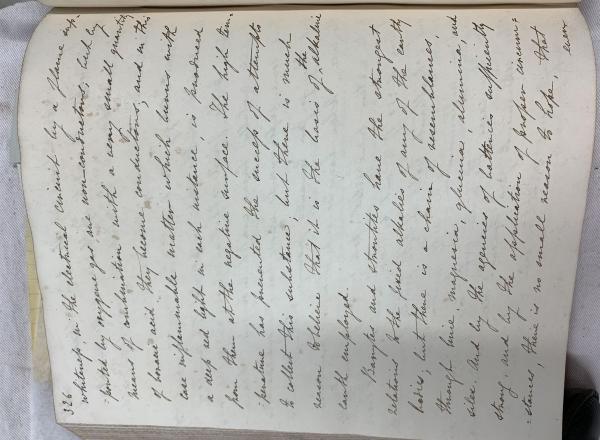 326
relationship in the electrical circuit by a flame sup-
-ported by oxygene gas, are non-conductors, but by
means of combination with a very small quantity
of boracic acid they become conductors, and in this
case inflammable matter which burns with
a deep red light in each instance, is produced
from them at the negative surface. The high tem-
-perature has prevented the success of attempts
to collect this substance, but there is much
reason to believe that it is the basis of the alkaline
earth employed.
Barytes and strontites have the strongest
relations to the fixed alkalies of any of the earthy
bodies, but there is a chain of resemblances,
through lime, magnesia, glucina, alumina, and
silex. And by the agencies of batteries sufficiently
strong, and by the application of proper circum=
=stances, there is no small reason to hope, that
even